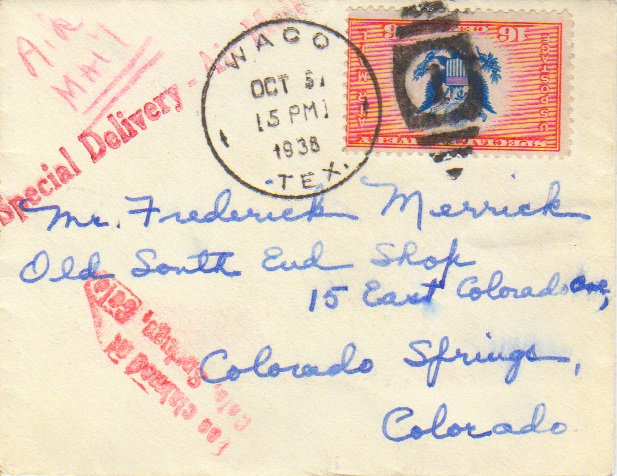 AIR
MAIL
Special Delivery - Air Mail
WACO
OCT 5
15 PM
1938
- TEX.
16 CENTS 16
Mr. Frederick Merrick
Old South End Shop
15 East Colorado Ave,
Colorado Springs,
Colorado.
Fee claimed at
Colo. Springs, Colo.